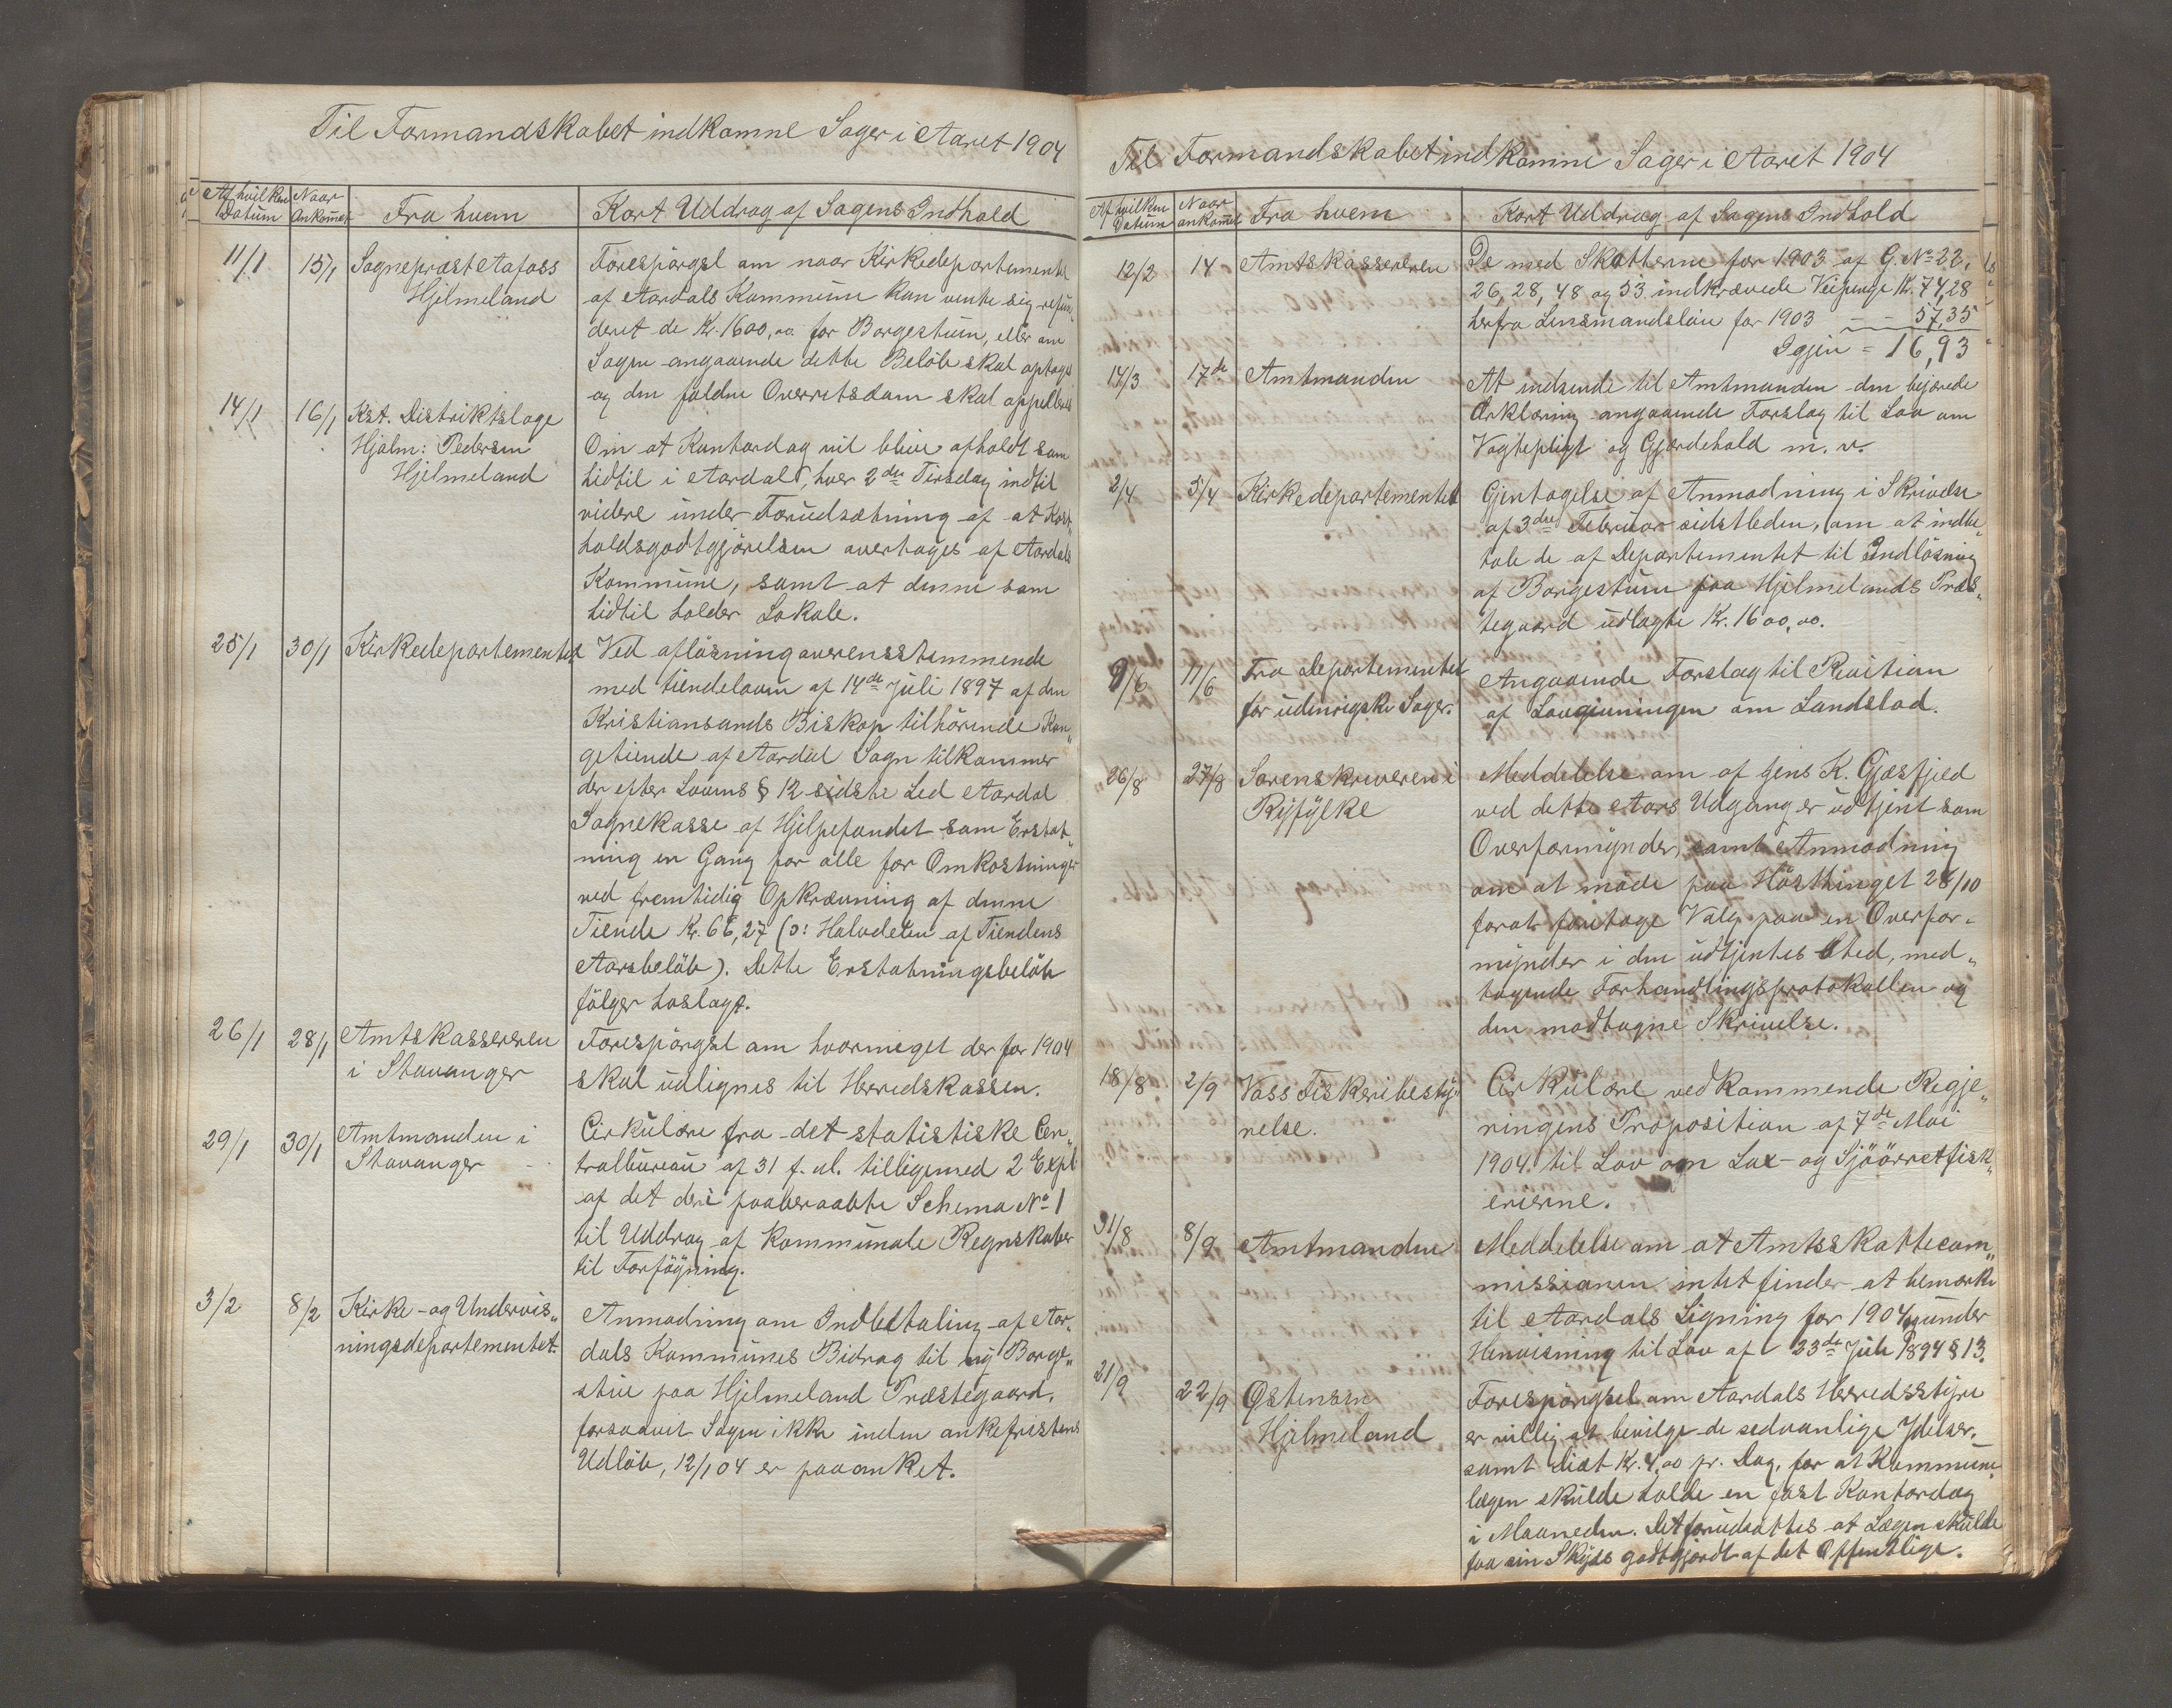 Til Formandskabet indkomne Sager i Aaret 1904
Af hvilken Datum | Naar Ankommet | Fra hvem | Kort Uddrag af Sagens Indhold
11/1 | 15/1 | Sognepræst Aafoss | Forespørgsl om naar Kirkedepartementet
Hjelmeland | af Aardals Kommune kan vente sig refun„
deret de Kr. 1600,00 for Borgestuen, eller om
Sagen angaaende dette Beløb skal optages
og den faldne Overretsdom skal appelleres
14/1 | 16/1 | Kst. Distriktslæge
Hjalm: Pedersen | Om at Kontordag vil blive afholdt som
Hjelmeland | hidtil i Aardal, hver 2den Tirsdag indtil
videre under Forudsætning af at Kost„
holdsgodtgjørelsen overtages af Aardals
Kommune, samt at denne som
hidtil holder Lokale.
25/1 | 30/1 | Kirkedepartementet | Ved afløsning overensstemmende
med tiendeloven af 14de Juli 1897 af den
Kristiansands Biskop tilhørende Kon„
getiende af Aardal Sogn tilkommer
der efter Lovens § 12 sidste Led Aardal
Sognekasse af Hjelpefondet som Erstat„
ning en Gang for alle for Omkostninger
ved fremtidig Opkrævning af denne
Tiende Kr. 66,27 (ɔ: Halvdelen af Tiendens
Aarsbeløb). Dette Erstatningsbeløb
følger hoslagt.
26/1 | 28/1 | Amtskassereren | Forespørgsl om hvormeget der for 1904
i Stavanger | skal udlignes til Herredskassen.
29/1 | 30/1 | Amtmanden i | Cirkulære fra det statistiske Cen„
Stavanger | tralbureau af 31 f. al. tilligemed 2 Expl
af det deri paaberaabte Schema No 1
til Uddrag af kommunale Regnskaber
til Forføyning.
3/2 | 8/2 | Kirke- og Undervis„ | Anmodning om Indbetaling af Aar„
ningsdepartementet. | dals Kommunes Bidrag til ny Borge„
stue paa Hjelmeland Præstegaard,
forsaavit Sagen ikke inden ankefristens
Udløb, 12/1 04 er paaanket.
Til Formandskabet indkomne Sager i Aaret 1904
Af hvilken Datum | Naar ankommet | Fra hvem | Kort Uddrag af Sagens Indhold
12/2 | 14 | Amtskassereren | De med Skatterne for 1903 af G. No 22,
26, 28, 48 og 53 indkrævede Veipenge Kr. 74,28
herfra Lensmandsløn for 1903 — — 57,35
Igjen = 16,93
14/3 | 17de | Amtmanden | At indsende til Amtmanden den bejærede
Ærklæring angaaende Forslag til Lov om
Vogtepligt og Gjærdehold m. v.
2/4 | 5/4 | Kirkedepartementet | Gjentagelse af Anmodning i Skrivelse
af 3die Februar sidstleden, om at indbe„
tale de af Departementet til Indløsning
af Borgestuen paa Hjelmelands Præs„
tegaard udlagte Kr. 1600,00.
9/6 | 11/6 | Fra Departementet | Angaaende Forslag til Revition
for udenrigske Sager. | af Lovgivningen om Landslod.
26/8 | 27/8 | Sorenskriveren i | Meddelelse om af Jens K. Gjæsfjeld
Ryfylke | ved dette Aars Udgang er udtjent som
Overformynder, samt Anmodning
om at møde paa Høstthinget 28/10
forat foretage Valg paa en Overfor„
mynder i den udtjentes Sted, med„
tagende Forhandlingsprotokollen og
den modtagne Skrivelse.
18/8 | 2/9 | Voss Fiskeribesty„ | Cirkulære vedkommende Regje„
relse. | ringens Proposition af 7de Mai
1904 til Lov om Lax- og Sjøørretfisk„
erierne.
31/8 | 8/9 | Amtmanden | Meddelelse om at Amtsskattecom„
missionen intet finder at bemærke
til Aardals Ligning for 1904, under
Henvisning til Lov af 23de Juli 1894 § 13.
21/9 | 22/9 | Østensen | Forespørgsel om Aardals Herredsstyre
Hjelmeland | er villig at bevilge de sedvanlige Ydelser,
samt Diæt Kr. 4,00 pr. Dag, for at Kommune„
lægen skulde holde en fast Kontordag
i Maaneden. Det forudsattes at Lægen skulde
faa sin Skyds godtgjordt af det Offentlige.